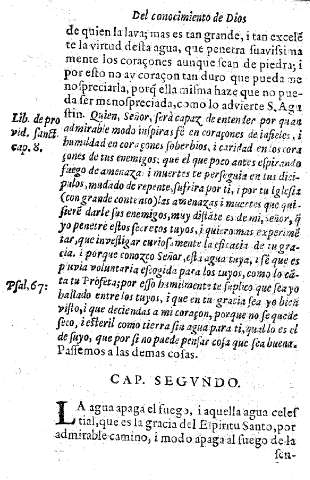 Del conocimiento de Dios
de quien la lava; mas es tan grande, i tan excelẽ
te la virtud desta agua, que penetra suavissima
mente los coraçones aunque sean de piedra; i
por esto no ay coraçon tan duro que pueda me
nospreciarla, porq̃ ella misma haze que no pue
da ser menospreciada, como lo advierte S. Agu
Lib. de pro
vid. sanct.
cap. 8.
stin. Quien, Señor, serà capaz de entender por quan
admirable modo inspiras fè en coraçones de infieles, i
humildad en coraçones soberbios, i caridad en los cora
çones de tus enemigos: que el que poco antes espirando
fuego de amenaza i muertes te perseguia en tus dici
pulos, mudado de repente, sufriria por ti, i por tu Iglesia
(con grande contento) las amenazas i muertes que qui
siere darle sus enemigos, muy distãte es de mi, Señor, q̃
yo penetre estos secretos tuyos, i quiero mas experimẽ
tar, que investigar curiosamente la eficacia de tu gra
cia. i porque conozco Señor, està agua tuya, i sè que es
Psal. 67:
pluvia voluntaria escogida para los tuyos, como lo cã
ta tu Profeta; por esso humilmente te suplico que sea yo
hallado entre los tuyos, i que en tu gracia sea yo bien
visto, i que deciendas a mi coraçon, porque no se quede
seco, i esteril como tierra sin agua para ti, qual lo es el
de suyo, que por si no puede pensar cosa que sea buena.
Passemos a las demas cosas.
CAP. SEGVNDO.
LA agua apaga el fuego, i aquella agua celes
tial, que es la gracia del Espiritu Santo, por
admirable camino, i modo apaga al fuego de la
sen-